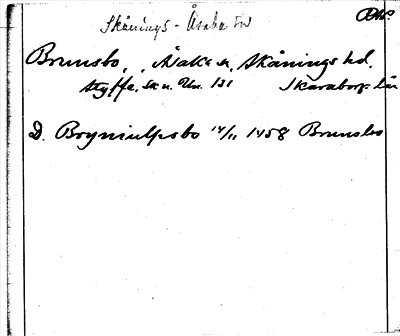 Skånings-Åsaka sn
Brunsbo, Åsaka sn, Skånings hd.
Styffe, Sk u. Un. 131 Skaraborgs län
D. Bryniulfsbo 14/11 1458 Brunsbo